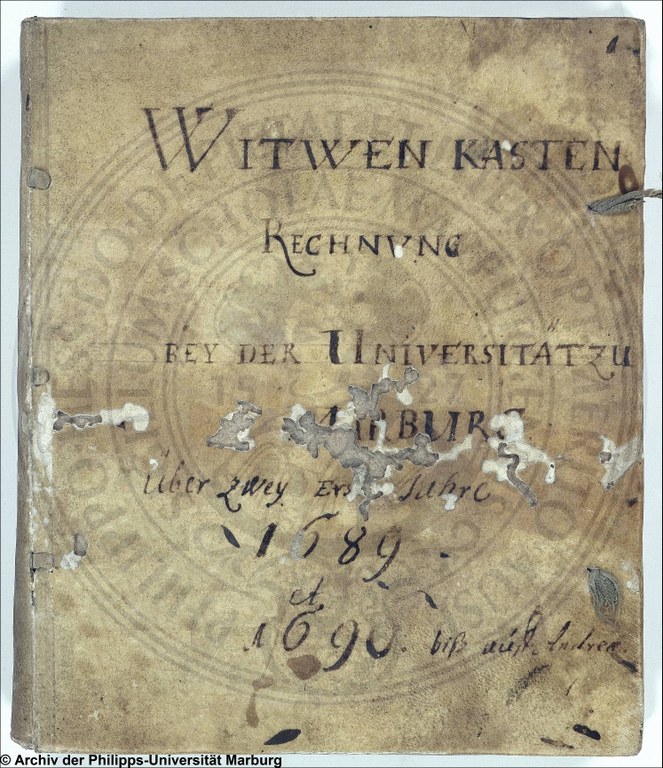 WITWEN KASTEN
RECHNVNG
BEY DER UNIVERSITÄT ZU
MARBURG
Über zwey Erst Jahre
1689
et
1690. biß auff Andreæ
© Archiv der Philipps-Universität Marburg